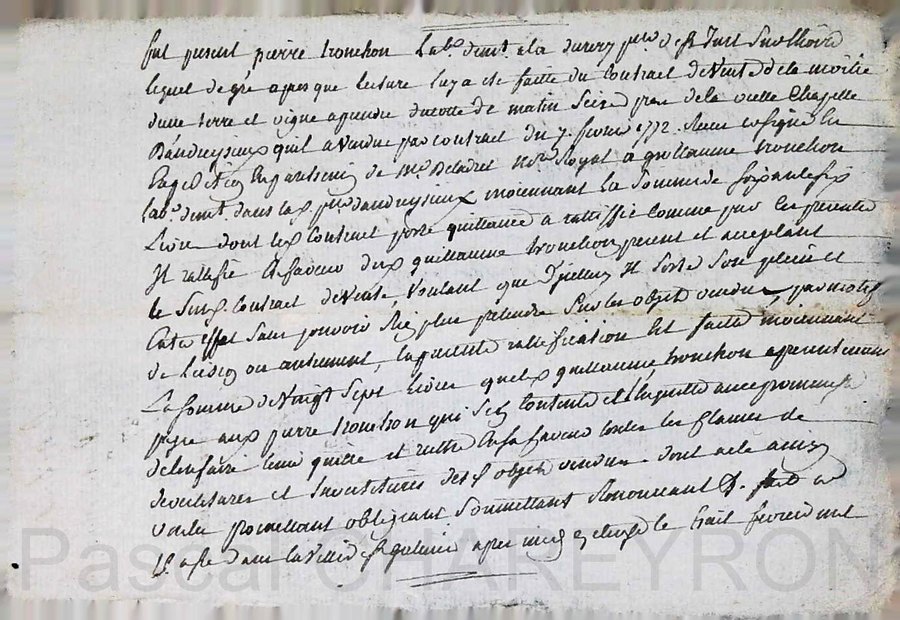 fut present pierre tronchon Lab.r demt. a la par.se de St Just Sur Loire
lequel de gré apres que lecture luy a été faitte du Contract de Vente de la moitié
d'une terre et vigne a prendre du cotté de matin Scize près de la vielle Chapelle
D'andreyieux quil a vendue par contract du 7. fevrier 1772. Receu et signé
de Me. Deladret No.re Royal a guillaume tronchon
Lab.r demt. dans lad. p.sse d'andreyieux moiennant La Somme de soixante six
Livres dont led. Contract porte quittance a rattiffié comme par les presentes
Il rattiffie En faveur dud. guillaume tronchon present et acceptant
le Susd. Contract de Vente, Voulant que d'icelluy Il Sorte Son plein et
Entier effet Sans pouvoir Rien plus pretendre Sur les objets vendus, par motif
de Lezion ou autrement, la presente rattiffication Est faitte moiennant
La Somme de Vingt Sept Livres que led. guillaume tronchon a presentement
payé aud. pierre tronchon qui S'en Contente et L'en quitte avec promesse
de l'en faire tenir quitte et au Sa faveur toutes les Clauses de
devestitures et Investitures desd. objets vendus dont acte ainsy
voulu promettant obligeant Soumettant Renonceant &. fait et
passé dans la Ville St galmier apres midy le huit fevrier mil
Pascal CHAREYRON